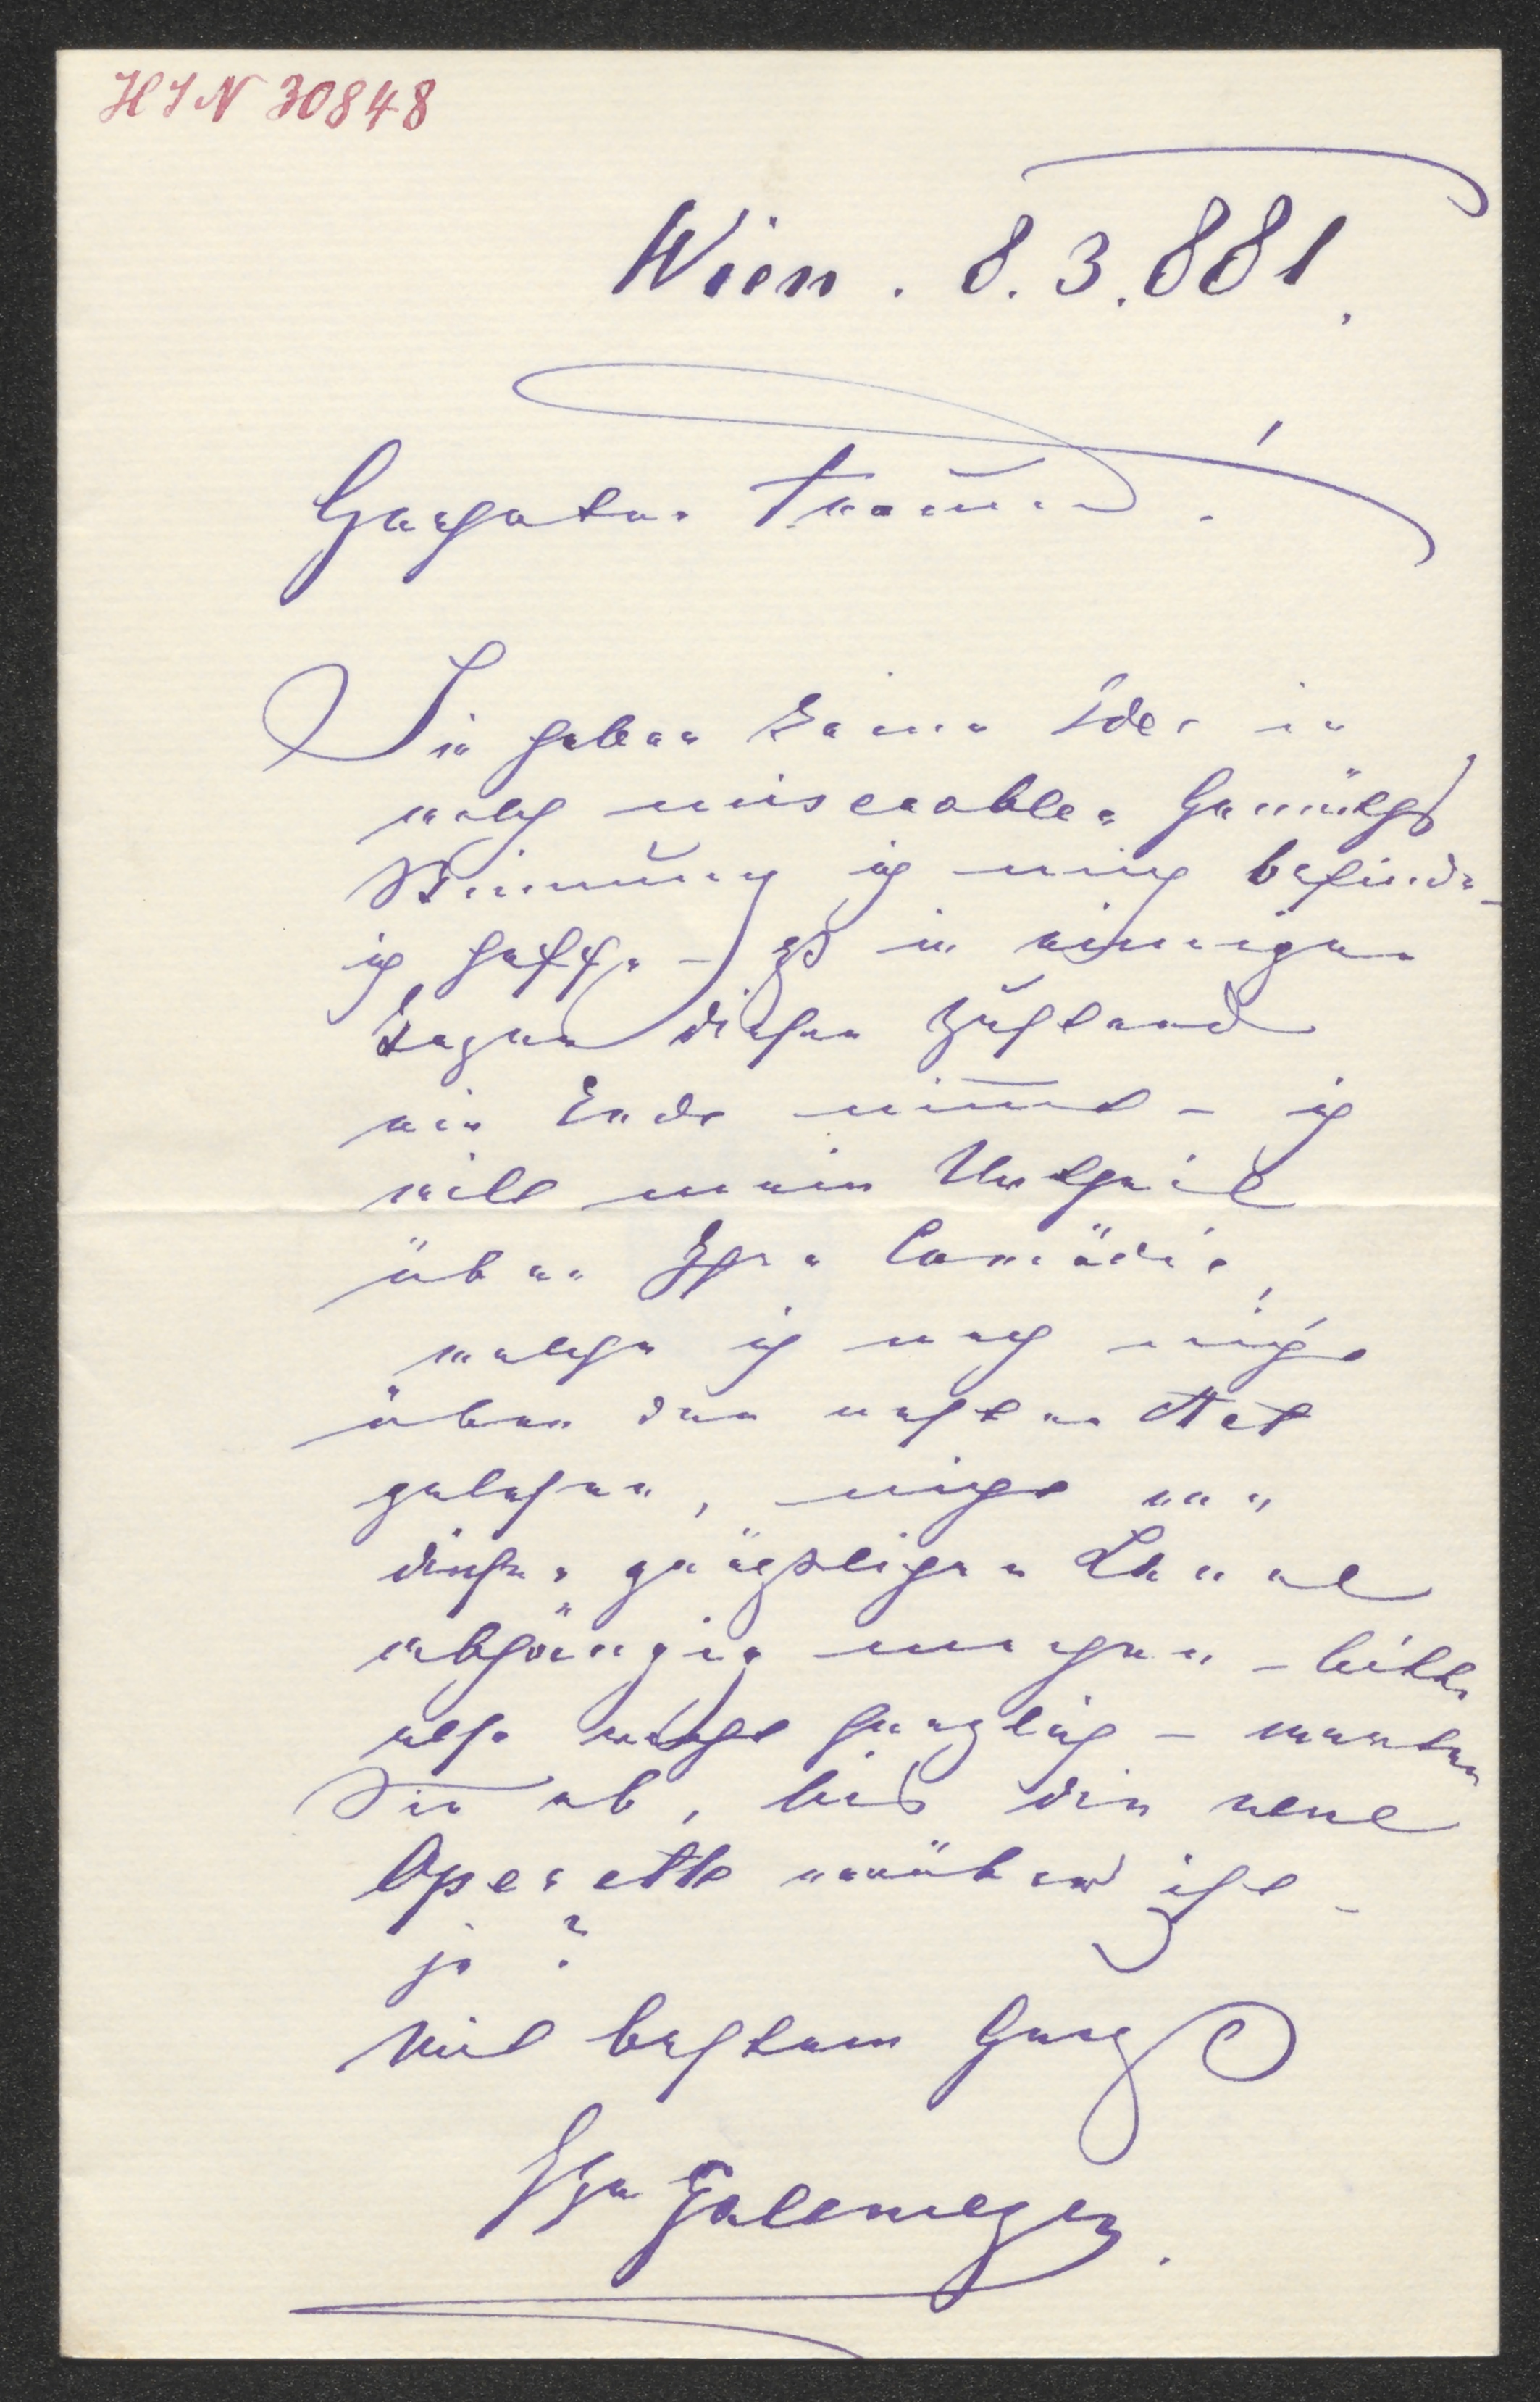 HIN 30848
Wien. 8.3.881.
Geehrter Freund!
Sie haben keine Idee in
welch miserabler Gemüths
Stimmung ich mich befinde –
ich hoffe – daß in einigen
Tagen dieser Zustand
ein Ende nimmt – ich
will mein Urtheil
über Ihre Comödie,
welche ich noch nicht
über den ersten Act
gelesen, nicht von
dieser gräßlichen Laune
abhängig machen – bitte
also recht herzlich – warten
Sie ab, bis die neue
Operette vorüber ist –
ja?
Mit bestem Gruß
Ihr Gallmeyer.